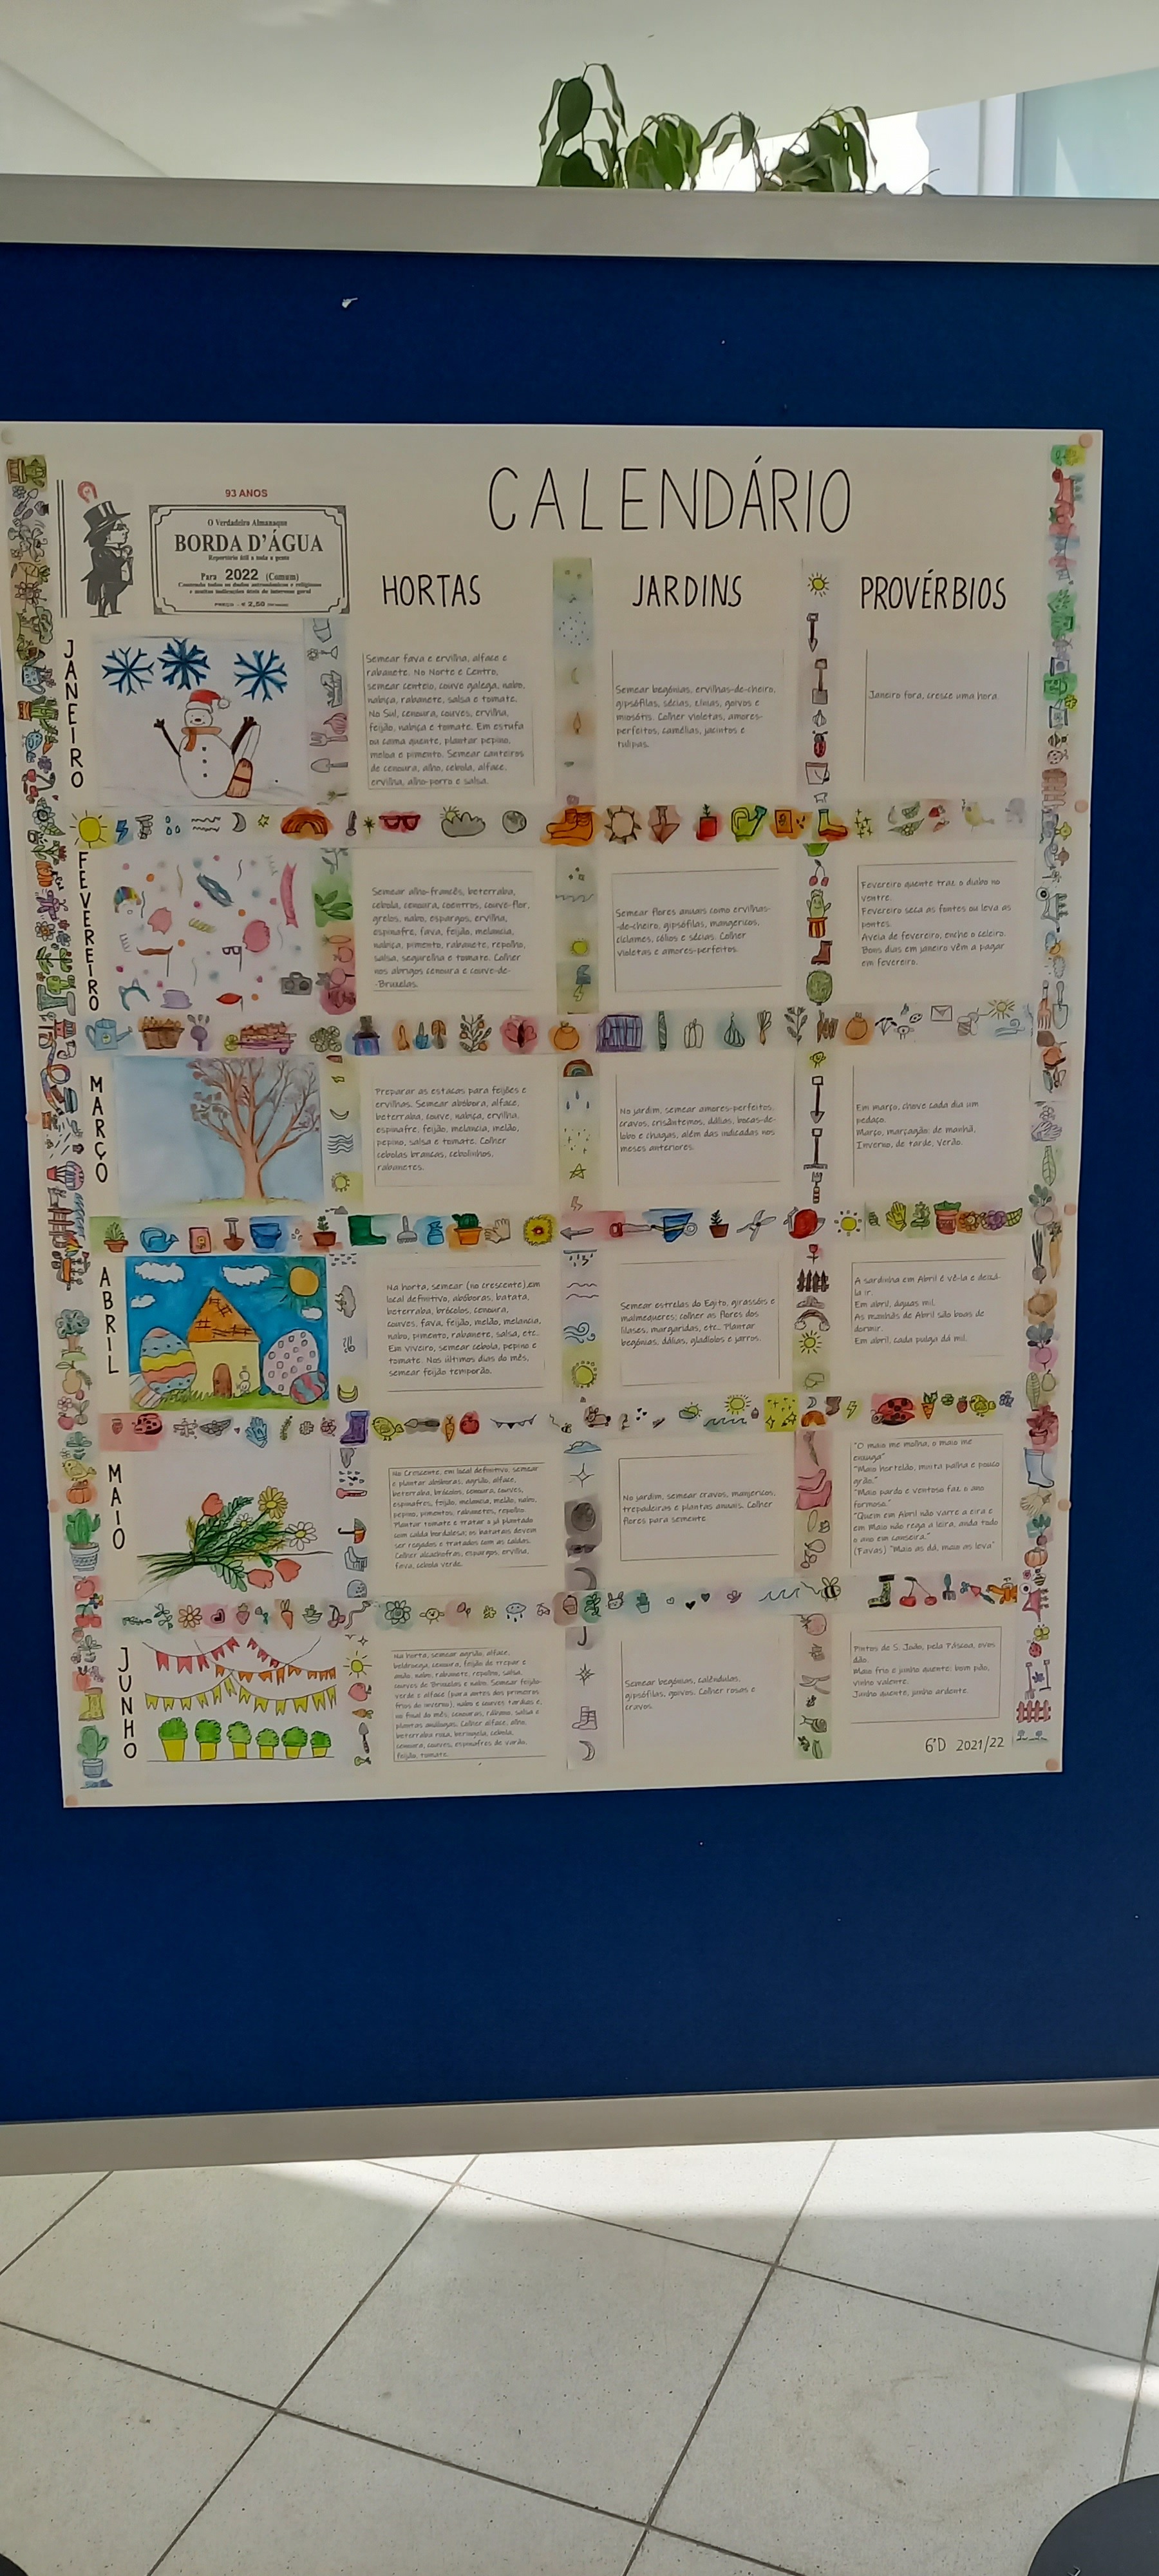 CALENDÁRIO
93 ANOS
O Verdadeiro Almanaque
BORDA D'ÁGUA
Reportório útil a toda a gente
Para 2022 (Comum)
Contendo todos os dados astronómicos e religiosos
e muitas indicações úteis de interesse geral
PREÇO - € 2,50
HORTAS
JARDINS
PROVÉRBIOS
JANEIRO
Semear fava e ervilha, alface e
rabanete. No Norte e Centro,
semear centeio, couve galega, nabo,
nabiça, rabanete, salsa e tomate.
No Sul, cenoura, couves, ervilha,
feijão, nabiça e tomate. Em estufa
ou cama quente, plantar pepino,
meloa e pimento. Semear canteiros
de cenoura, alho, cebola, alface,
ervilha, alho-porro e salsa.
Semear begónias, ervilhas-de-cheiro,
gipsófilas, sécias, zínias, goivos e
miosótis. Colher violetas, amores-
perfeitos, camélias, jacintos e
tulipas.
Janeiro fora, cresce uma hora.
FEVEREIRO
Semear alho-francês, beterraba,
cebola, cenoura, coentros, couve-flor,
grelos, nabo, espargos, ervilha,
espinafre, fava, feijão, melancia,
nabiça, pimento, rabanete, repolho,
salsa, segurelha e tomate. Colher
nos abrigos cenoura e couve-de-
-Bruxelas.
Semear flores anuais como ervilhas-
-de-cheiro, gipsófilas, manjericos,
ciclames, cólios e sécias. Colher
violetas e amores-perfeitos.
Fevereiro quente traz o diabo no
ventre.
Fevereiro seca as fontes ou leva as
pontes.
Aveia de fevereiro, enche o celeiro.
Bons dias em janeiro vêm a pagar
em fevereiro.
MARÇO
Preparar as estacas para feijões e
ervilhas. Semear abóbora, alface,
beterraba, couve, nabiça, ervilha,
espinafre, feijão, melancia, melão,
pepino, salsa e tomate. Colher
cebolas brancas, cebolinhos,
rabanetes.
No jardim, semear amores-perfeitos,
cravos, crisântemos, dálias, bocas-de-
lobo e chagas, além das indicadas nos
meses anteriores.
Em março, chove cada dia um
pedaço.
Março, marçagão: de manhã,
Inverno, de tarde, Verão.
ABRIL
Na horta, semear (no crescente),em
local definitivo, abóboras, batata,
beterraba, brócolos, cenoura,
couves, fava, feijão, melão, melancia,
nabo, pimento, rabanete, salsa, etc..
Em viveiro, semear cebola, pepino e
tomate. Nos últimos dias do mês,
semear feijão temporão.
Semear estrelas do Egito, girassóis e
malmequeres; colher as flores dos
lilases, margaridas, etc.. Plantar
begónias, dálias, gladíolos e jarros.
A sardinha em Abril é vê-la e deixá-
la ir.
Em abril, águas mil.
As manhãs de Abril são boas de
dormir.
Em abril, cada pulga dá mil.
MAIO
No Crescente, em local definitivo, semear
e plantar abóboras, agrião, alface,
beterraba, brócolos, cenoura, couves,
espinafres, feijão, melancia, melão, nabo,
pepino, pimentos, rabanetes, repolho.
Plantar tomate e tratar o já plantado
com calda bordalesa; as batatas devem
ser regadas e tratadas com as caldas.
Colher alcachofras, espargos, ervilha,
fava, cebola verde.
No jardim, semear cravos, manjericos,
trepadeiras e plantas anuais. Colher
flores para semente.
"O maio me molha, o maio me
enxuga"
"Maio hortelão, muita palha e pouco
grão."
"Maio pardo e ventoso faz o ano
formoso."
"Quem em Abril não varre a eira e
em Maio não rega a leira, anda todo
o ano em canseira."
(Favas) "Maio as dá, maio as leva"
JUNHO
Na horta, semear agrião, alface,
beldroega, cenoura, feijão de trepar e
anão, nabo, rabanete, repolho, salsa,
couves de Bruxelas e nabo. Semear feijão
verde e alface (para antes dos primeiros
frios do inverno), nabo e couves tardias e,
no final do mês: cenouras, rábano, salsa e
plantas análogas. Colher alface, alho,
beterraba roxa, beringela, cebola,
cenoura, couves, espinafres de verão,
feijão, tomate.
Semear begónias, calêndulas,
gipsófilas, goivos. Colher rosas e
cravos.
Pintos de S. João, pela Páscoa, ovos
dão.
Maio frio e junho quente: bom pão,
vinho valente.
Junho quente, junho ardente.
6ºD 2021/22